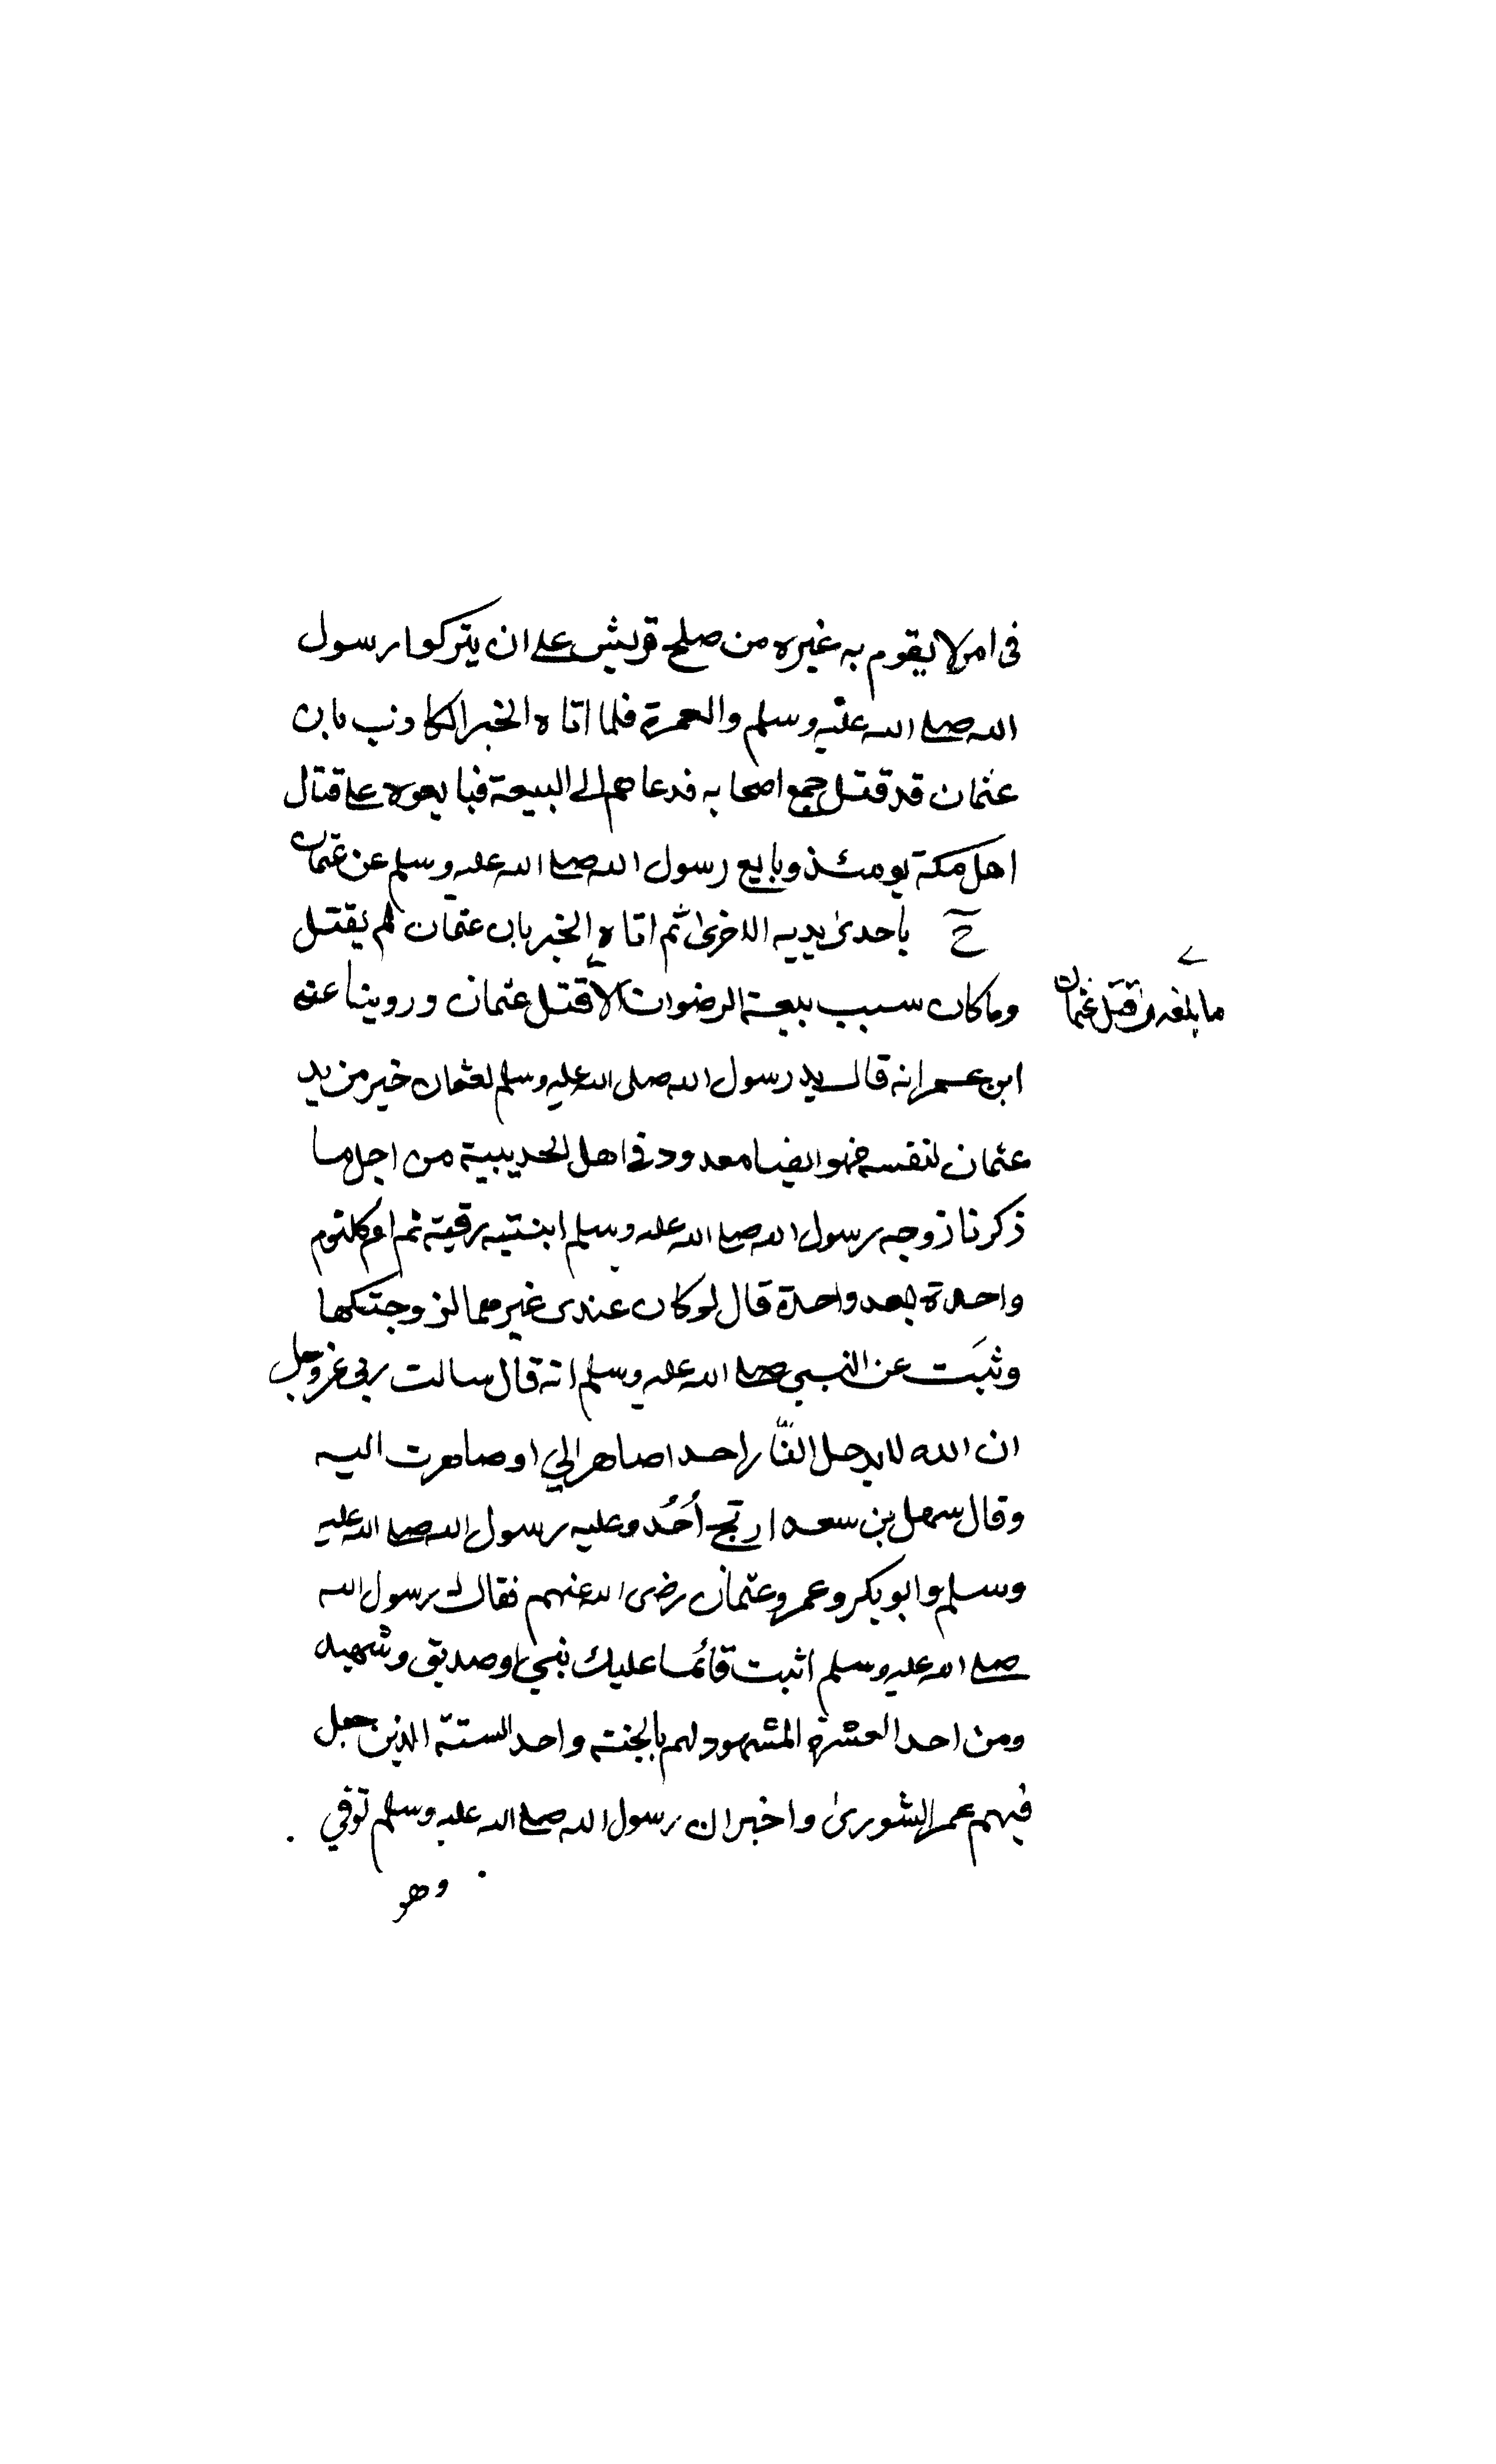 فى امر لا يقوم به غيره من صلح قريش على ان يتركوا رسول
الله صلى الله عليه وسلم والعمرة فلما اتاه الخبر الكاذب بان
عثمان قد قتل جمع اصحابه فدعاهم الى البيعة فبايعوه على قتال
اهل مكة يومئذ وبايع رسول الله صلى الله عليه وسلم عن عثمان
ح باحدى يديه الاخرى ثم اتاه الخبر بان عثمان لم يقتل
وما كان سبب بيعة الرضوان الا قتل عثمان وروينا عن
ما بلغه من قتل عثمان
ابن عمر انه قال يد رسول الله صلى الله عليه وسلم لعثمان خير من يد
عثمان لنفسه فهو ايضا معدود فى اهل الحديبية من اجل ما
ذكرنا زوجه رسول الله صلى الله عليه وسلم ابنتيه رقية ثم ام كلثوم
واحدة بعد واحدة قال لو كان عندى غيرهما لزوجتكها
وثبت عن النبي صلى الله عليه وسلم انه قال سالت ربى عز وجل
ان الله لا يدخل النار احدا صاهر الي او صاهرت اليه
وقال سهل بن سعد ارتج أُحُد وعليه رسول الله صلى الله عليه
وسلم وابو بكر وعمر وعثمان رضى الله عنهم فقال رسول الله
صلى الله عليه وسلم اثبت قائما عليك نبي وصديق وشهيد
ومن احد العشرة المشهود لهم بالجنة واحد الستة الذين جعل
فيهم عمر الشورى واخبر ان رسول الله صلى الله عليه وسلم توفي
وهو